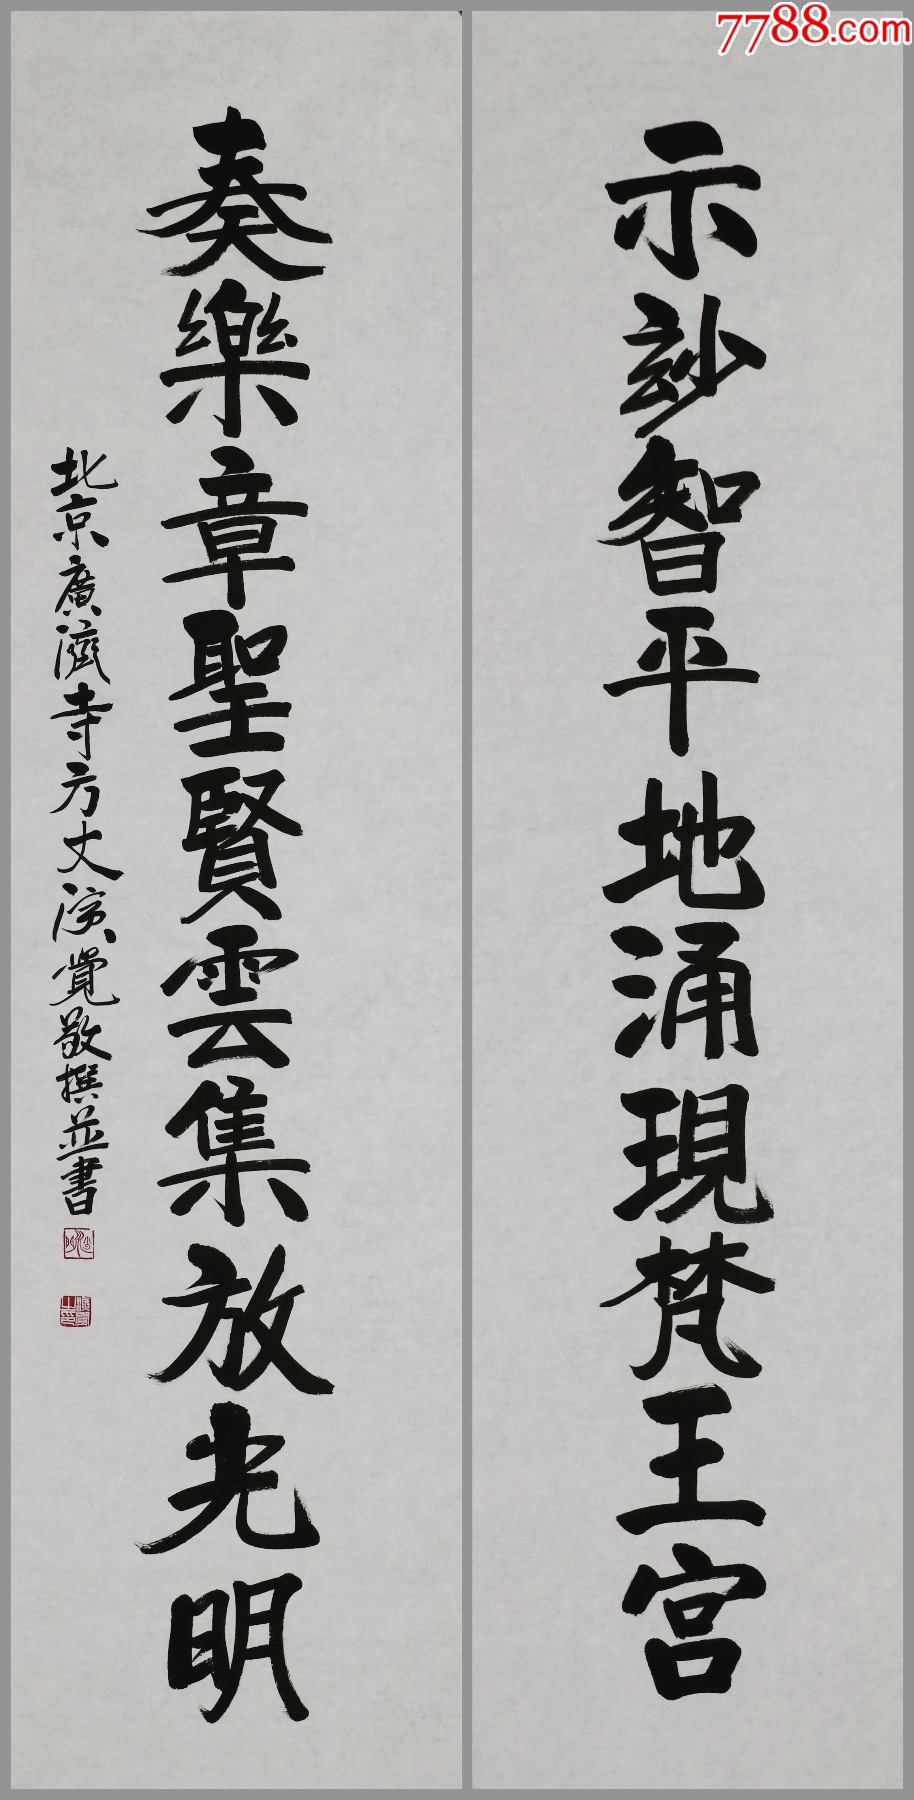 7788.com
示玅智平地涌現梵王宮
奏樂章聖賢雲集放光明
北京廣濟寺方丈演覺敬撰並書